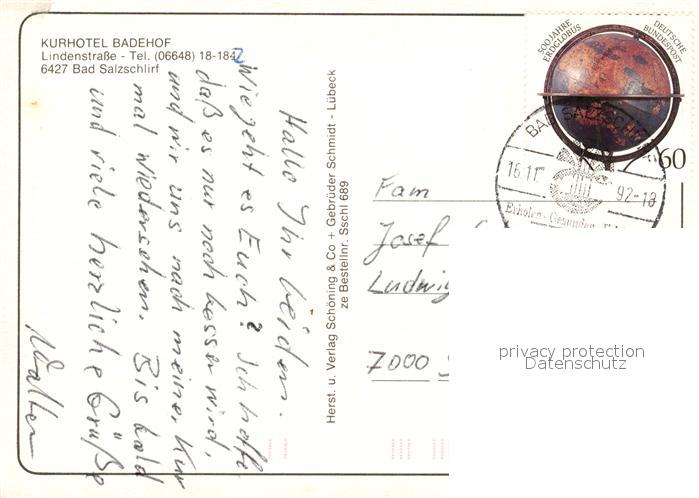 KURHOTEL BADEHOF
Lindenstraße - Tel. (06648) 18-184
6427 Bad Salzschlirf
Hallo Ihr beiden.
Wie geht es Euch? Ich hoffe
daß es nur noch besser wird,
und wir uns nach meiner Kur
mal wiedersehen. Bis bald
und viele herzliche Grüße
Walter
Herst. u. Verlag Schöning & Co + Gebrüder Schmidt - Lübeck
ze Bestellnr. Sschl 689
500 JAHRE
ERDGLOBUS
DEUTSCHE
BUNDESPOST
60
BAD SALZSCHLIRF
16.11. 92-18
Erholen-Gesunden
Fam
Josef
Ludwig
7000
privacy protection
Datenschutz